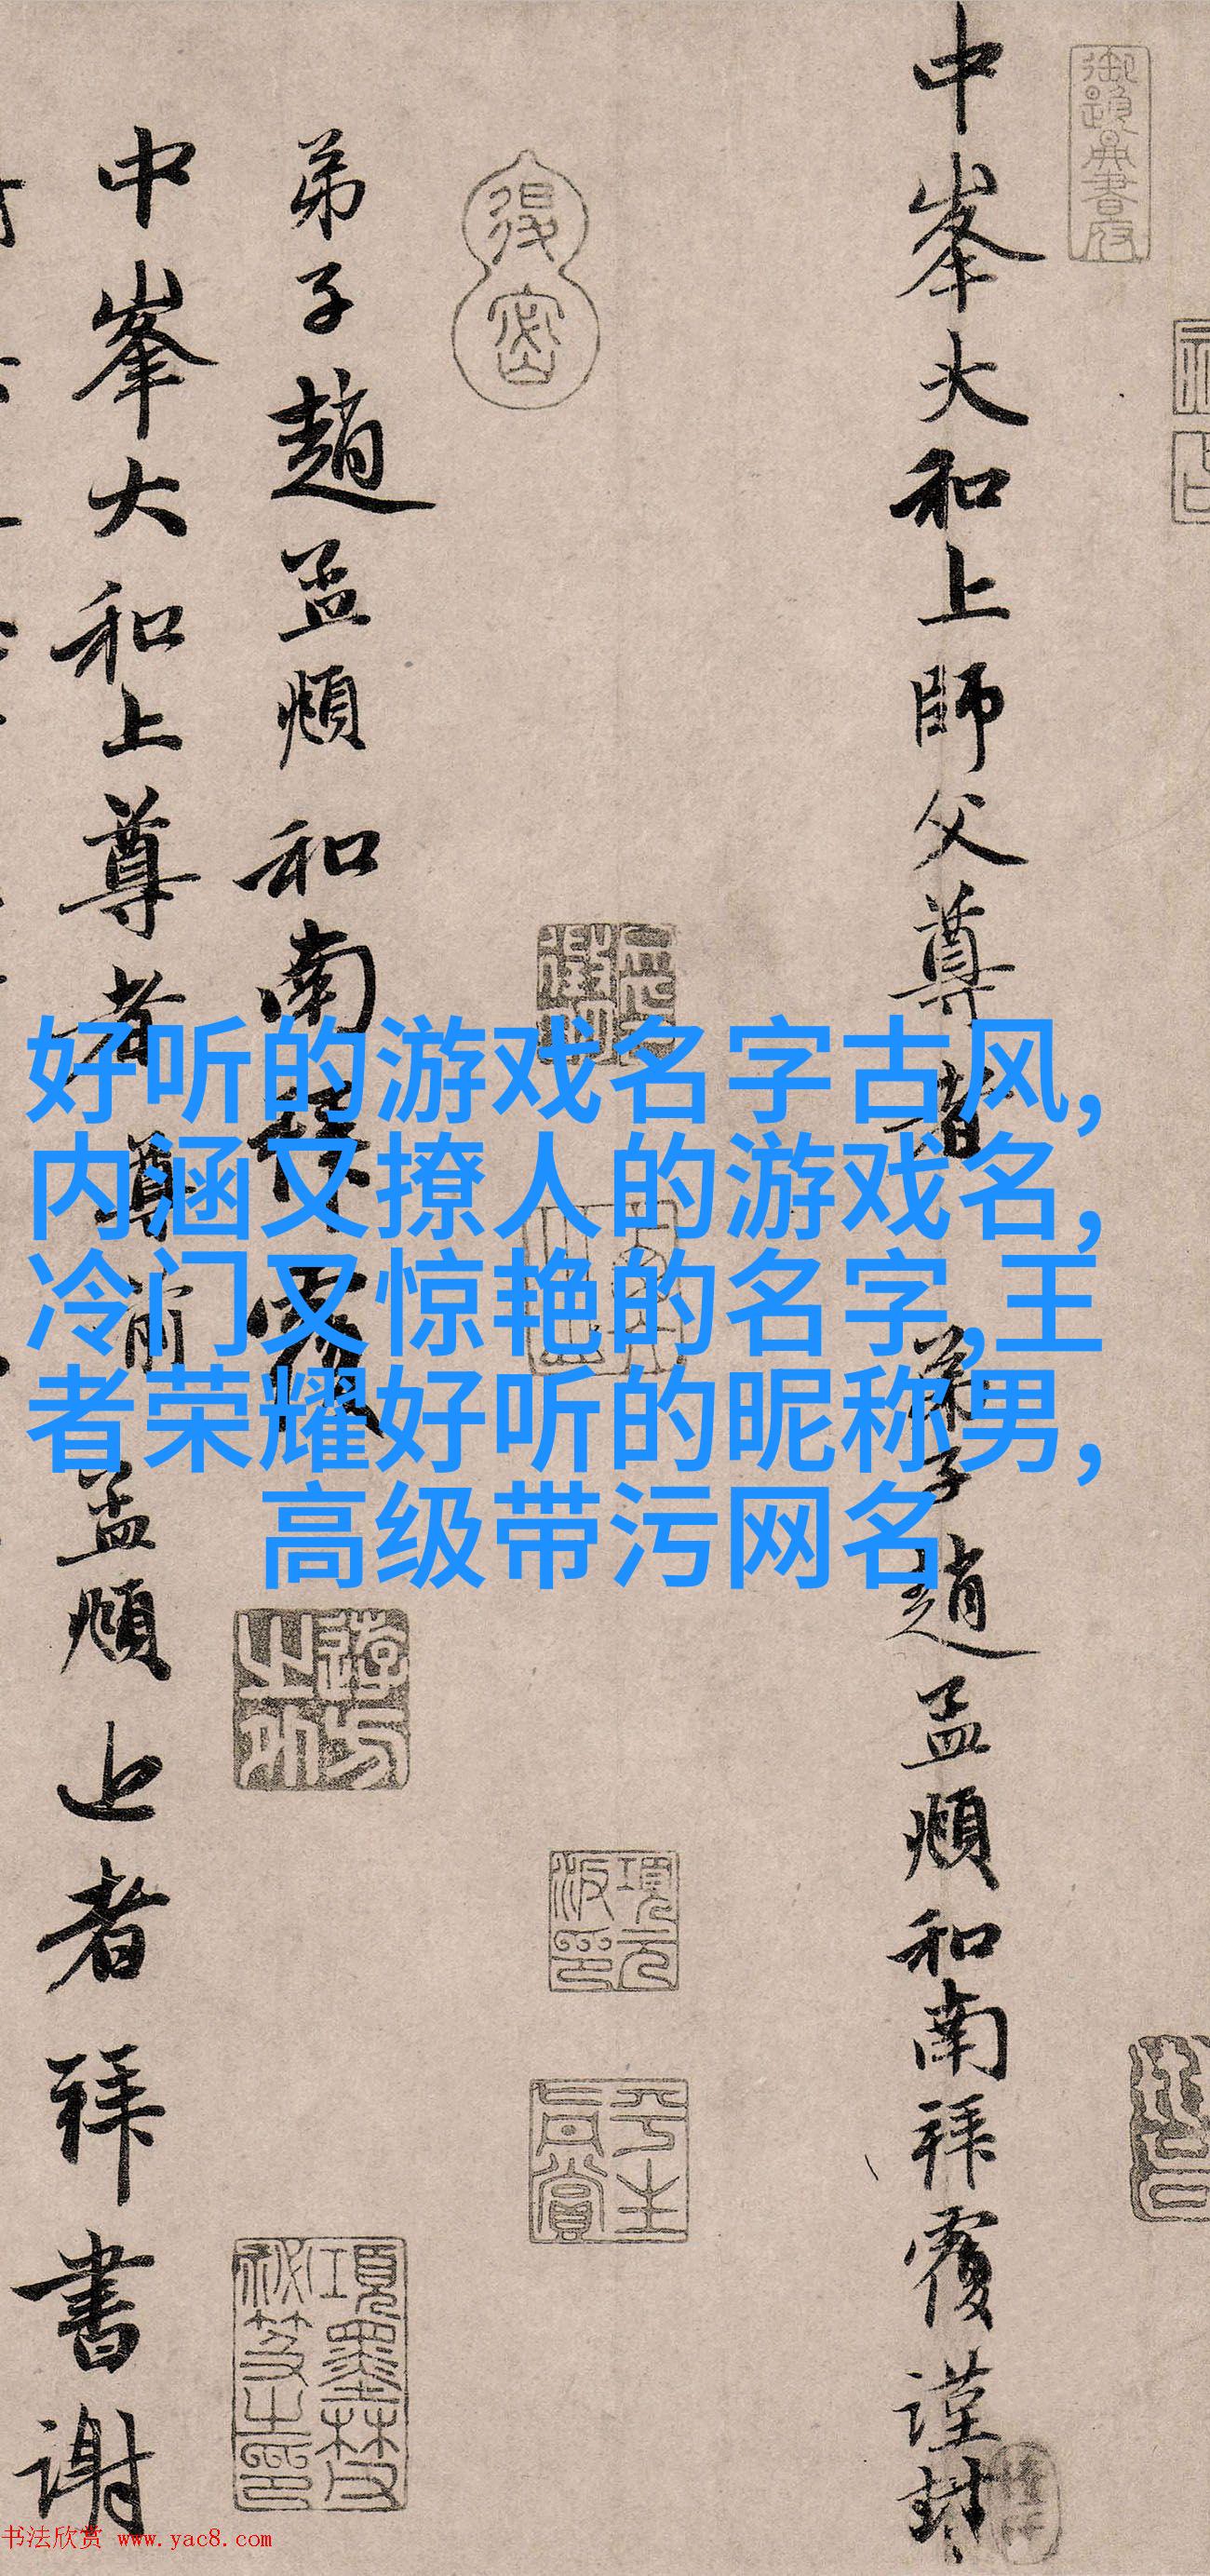 中峯大和上師父尊者 弟子趙孟頫和南拜覆謹封
弟子趙孟頫和南拜覆
中峯大和上尊者尊前 孟頫上者拜書謝
好听的游戏名字古风,
内涵又撩人的游戏名,
冷门又惊艳的名字,王
者荣耀好听的昵称男,
高级带污网名
项元
汴印
平生
真賞
項墨林父
秘笈之印
书法欣赏 www.yac8.com